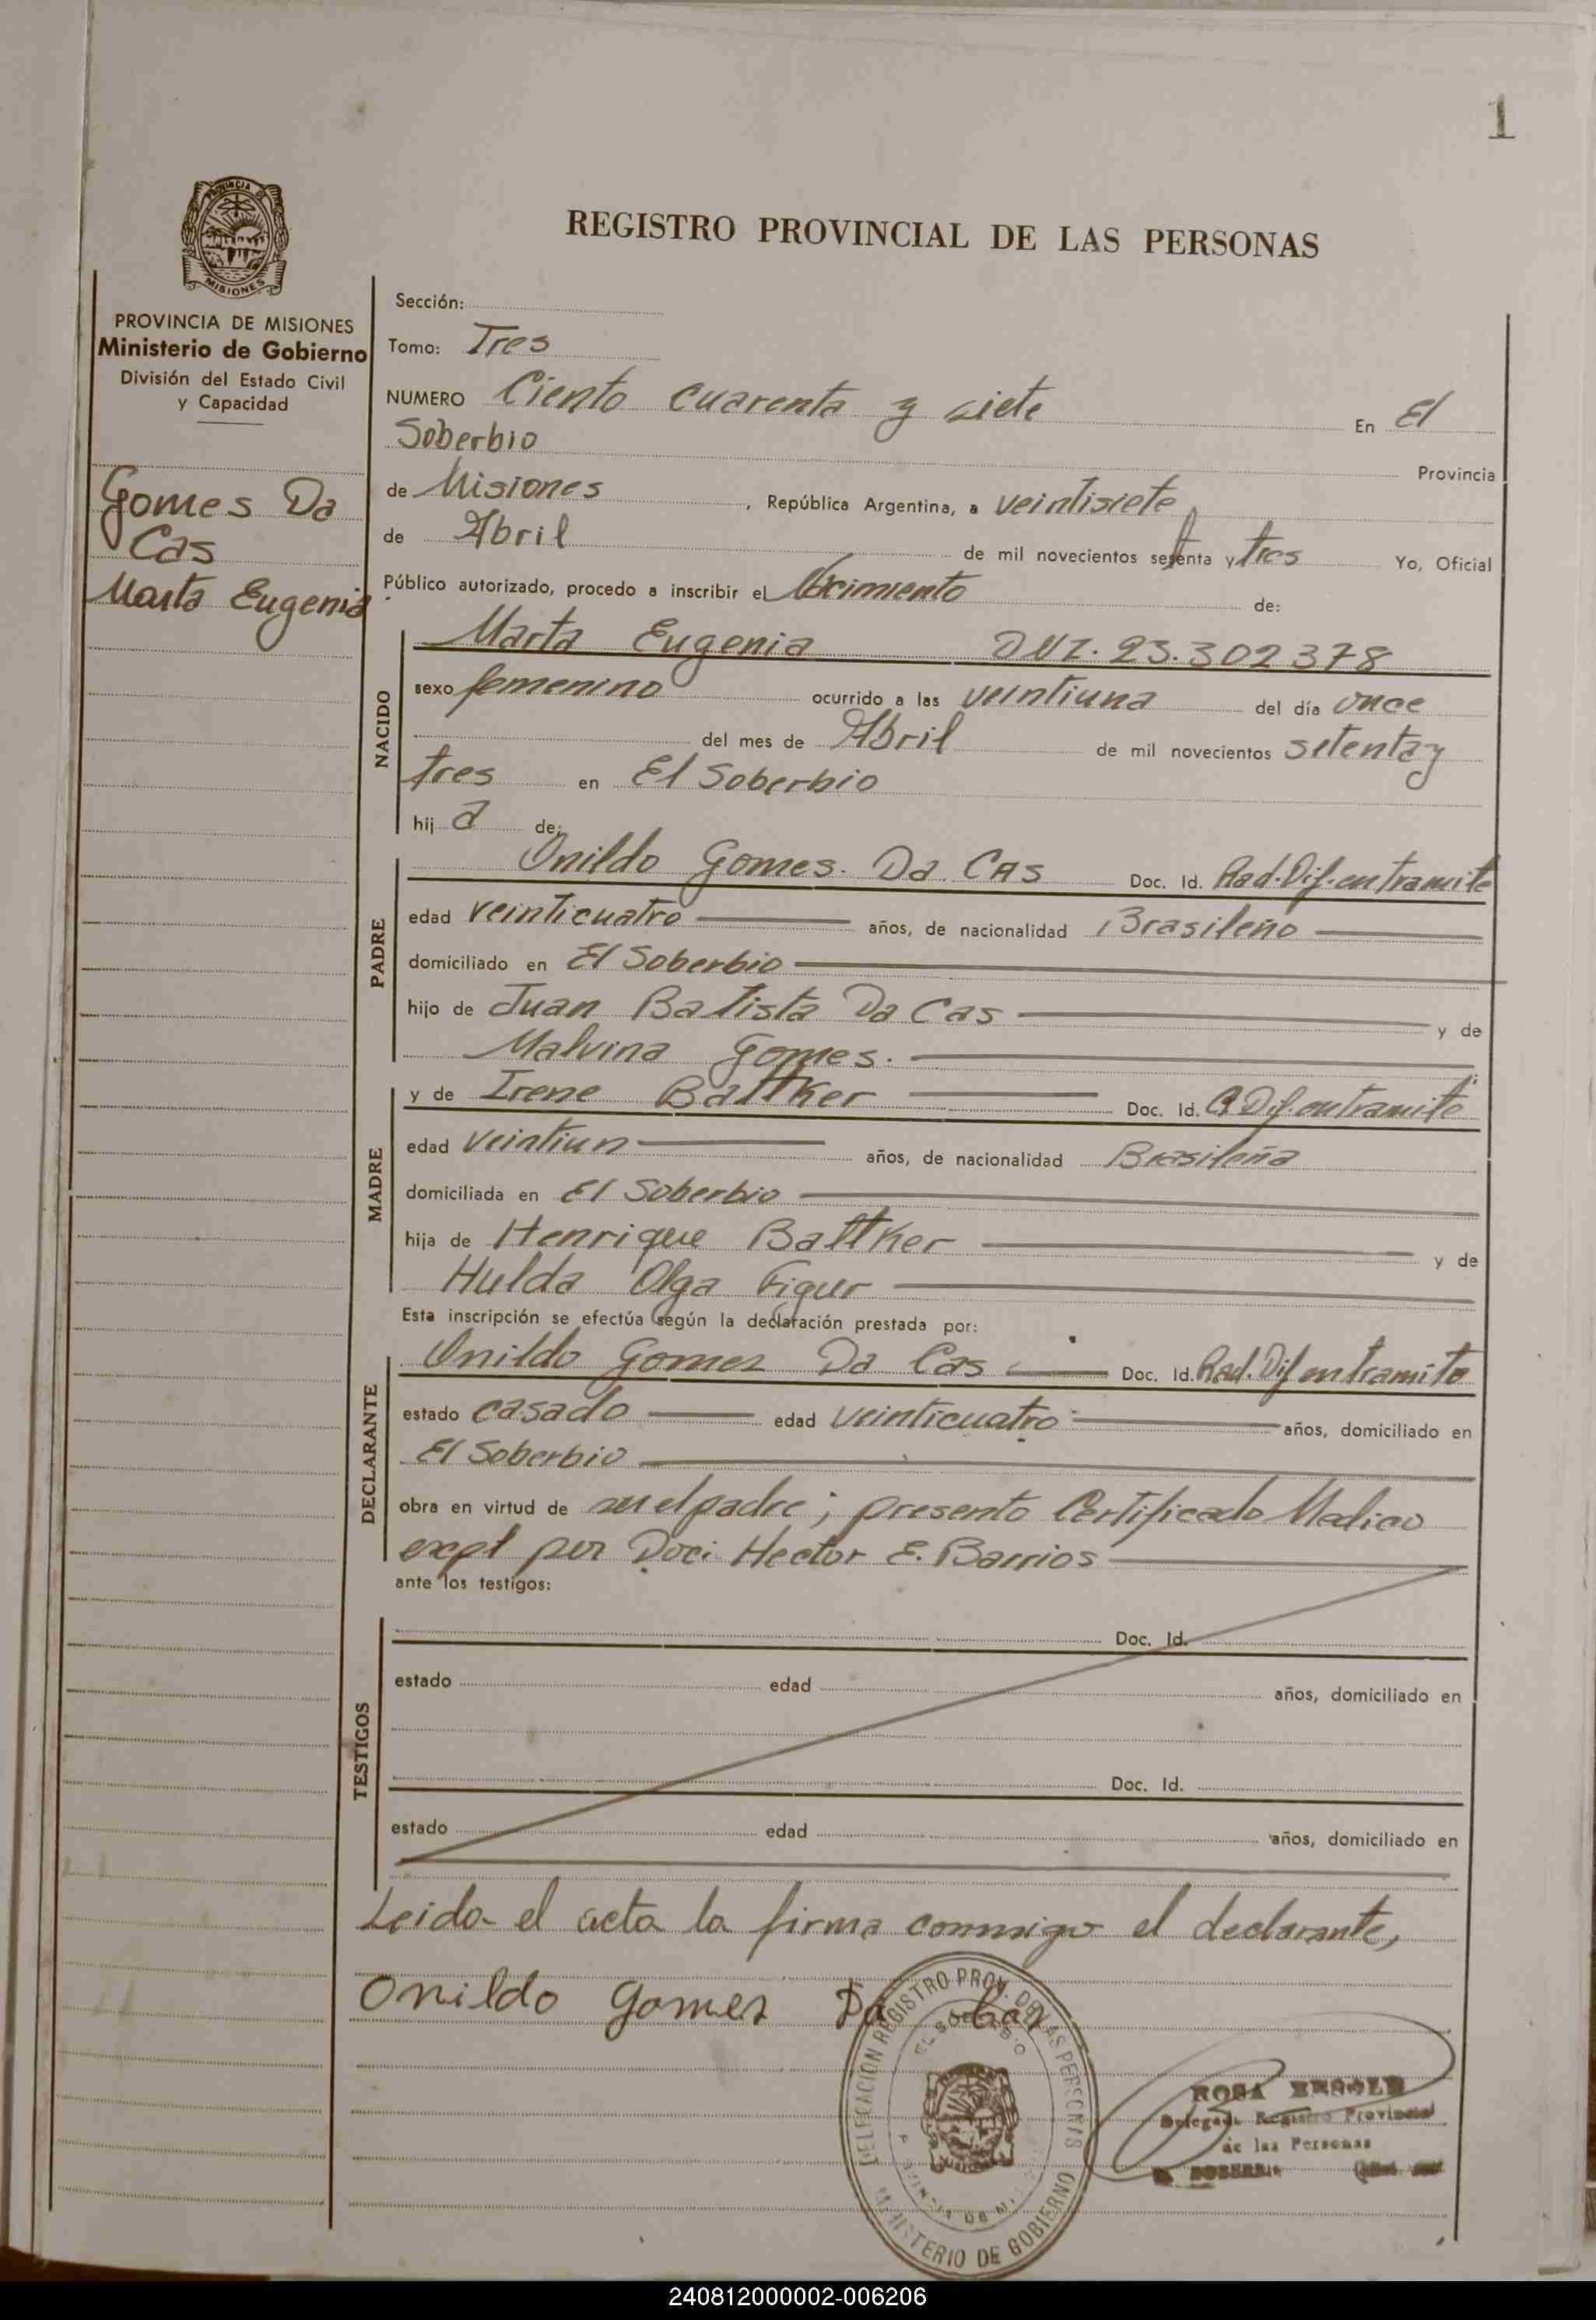 1
PROVINCIA DE
MISIONES
REGISTRO PROVINCIAL DE LAS PERSONAS
PROVINCIA DE MISIONES
Ministerio de Gobierno
División del Estado Civil
y Capacidad
Gomes Da
Cas
Marta Eugenia
Sección:
Tomo: Tres
NUMERO Ciento cuarenta y siete En El
Soberbio
Provincia
de Misiones, República Argentina, a veintisiete
de Abril de mil novecientos setenta y tres Yo, Oficial
Público autorizado, procedo a inscribir el Nacimiento de:
NACIDO
Marta Eugenia DNI. 23.302378
sexo femenino ocurrido a las veintiuna del día once
del mes de Abril de mil novecientos setenta y
tres en El Soberbio
hij a de:
PADRE
Onildo Gomes. Da Cas Doc. Id. Rad. Dif. en tramite
edad veinticuatro años, de nacionalidad Brasileño
domiciliado en El Soberbio
hijo de Juan Batista Da Cas y de
Malvina Gomes.
MADRE
y de Irene Battker Doc. Id. Dif. en tramite
edad veintiun años, de nacionalidad Brasileña
domiciliada en El Soberbio
hija de Henrique Battker y de
Hulda Olga Figur
Esta inscripción se efectúa según la declaración prestada por:
DECLARANTE
Onildo Gomez Da Cas Doc. Id. Rad. Dif en tramite
estado casado edad veinticuatro años, domiciliado en
El Soberbio
obra en virtud de ser el padre; presento Certificado Medico
por Doc: Hector E. Barrios
ante los testigos:
TESTIGOS
Doc. Id.
estado edad años, domiciliado en
Doc. Id.
estado edad años, domiciliado en
Leida el acta la firma conmigo el declarante,
Onildo Gomez Da Cas
DELEGACION REGISTRO PROV. DE LAS PERSONAS
EL SOBERBIO
MINISTERIO DE GOBIERNO
ROSA
Delegada Registro Provincial
de las Personas
240812000002-006206